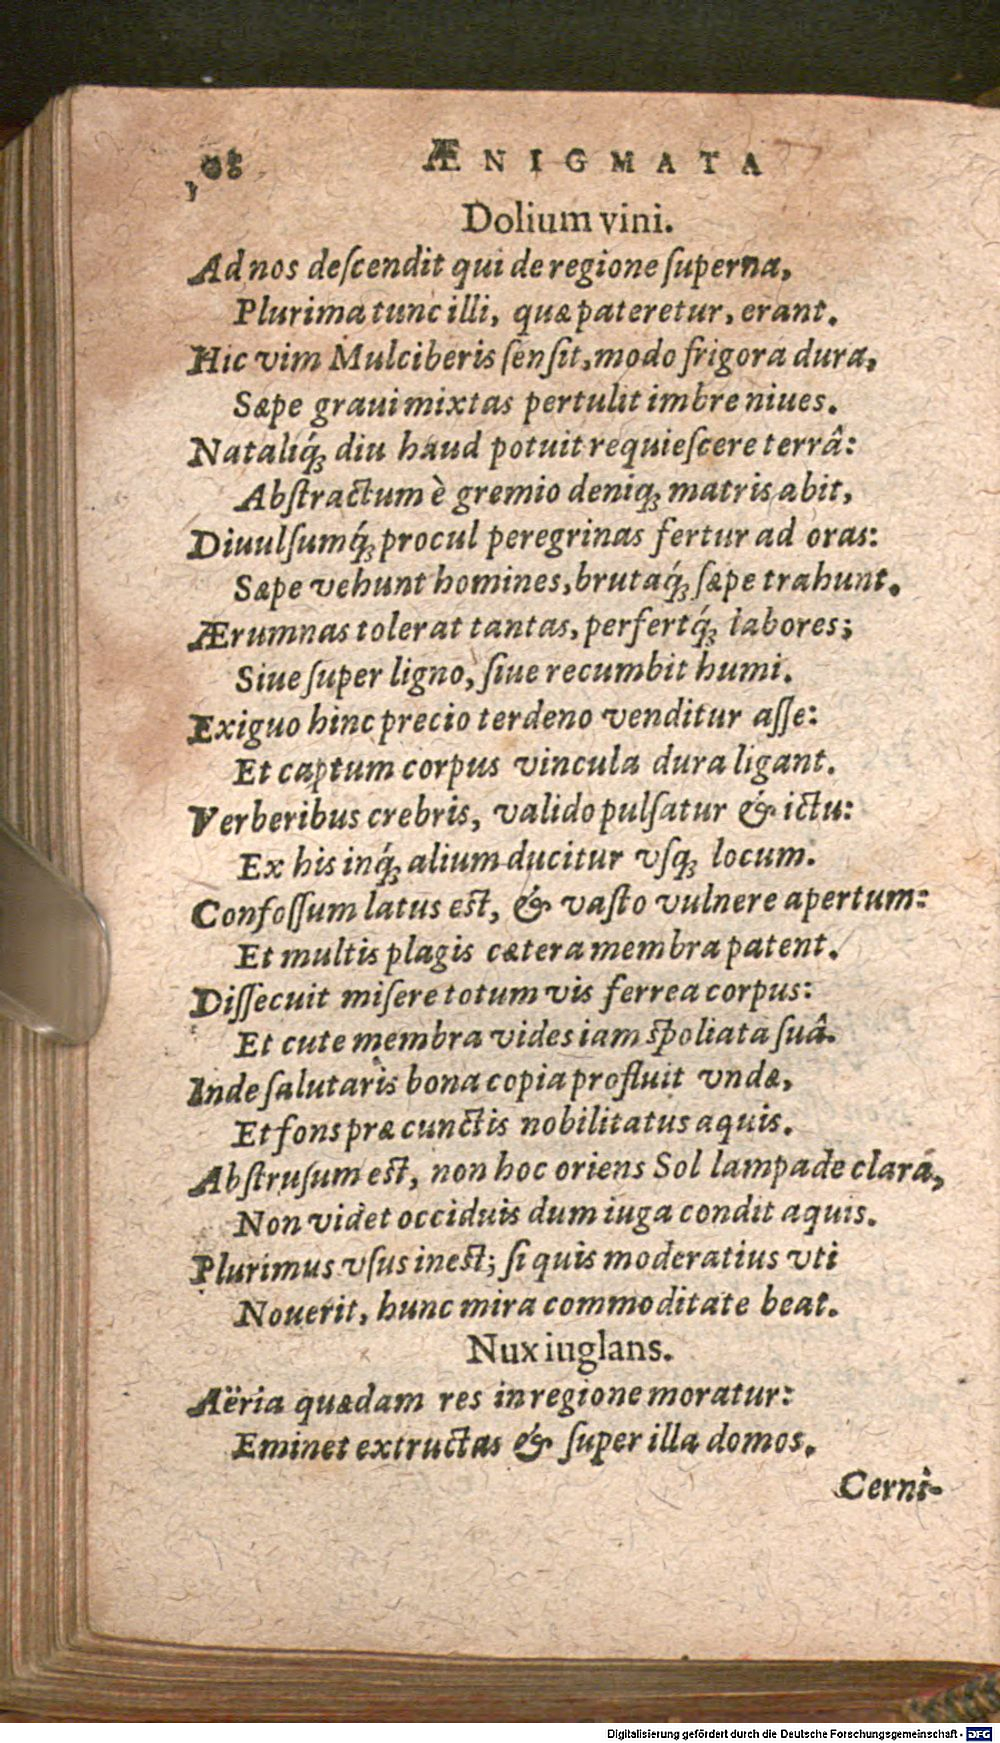 ÆNIGMATA
Dolium vini.
Ad nos deſcendit qui de regione ſuperna,
Plurima tunc illi, quæ pateretur, erant.
Hic vim Mulciberis ſenſit, modo frigora dura,
Sæpe graui mixtas pertulit imbre niues.
Nataliq́ꝫ diu haud potuit requieſcere terrâ:
Abſtractum è gremio deniqꝫ matris abit,
Diuulſumq́ꝫ procul peregrinas fertur ad oras:
Sæpe vehunt homines, brutaq́ꝫ ſæpe trahunt.
Ærumnas tolerat tantas, perfertq́ꝫ labores;
Siue ſuper ligno, ſiue recumbit humi.
Exiguo hinc precio terdeno venditur aſſe:
Et captum corpus vincula dura ligant.
Verberibus crebris, valido pulſatur & ictu:
Ex his inq́ꝫ alium ducitur vſqꝫ locum.
Confoſſum latus eſt, & vaſto vulnere apertum:
Et multis plagis cætera membra patent.
Diſſecuit miſere totum vis ferrea corpus:
Et cute membra vides iam ſpoliata ſuâ.
Inde ſalutaris bona copia profluit vndæ,
Et fons præ cunctis nobilitatus aquis.
Abſtruſum eſt, non hoc oriens Sol lampade clarâ,
Non videt occiduis dum iuga condit aquis.
Plurimus vſus ineſt; ſi quis moderatius vti
Nouerit, hunc mira commoditate beat.
Nux iuglans.
Aëria quædam res in regione moratur:
Eminet extructas & ſuper illa domos.
Cerni-
Digitalisierung gefördert durch die Deutsche Forschungsgemeinschaft - DFG